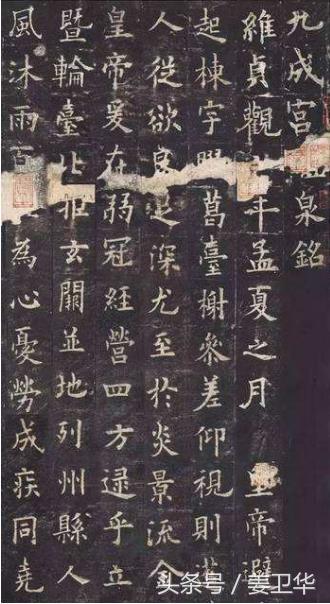 九成宮泉銘
維貞觀年孟夏之月 皇帝避
起棟宇葛臺榭參差仰視則
人從欲良足深尤至於炎景流金
皇帝爰在弱冠經營四方逮乎立
暨輪臺北拒玄闕並地列州縣人
風沐雨百為心憂勞成疾同堯
头条号 / 姜卫华